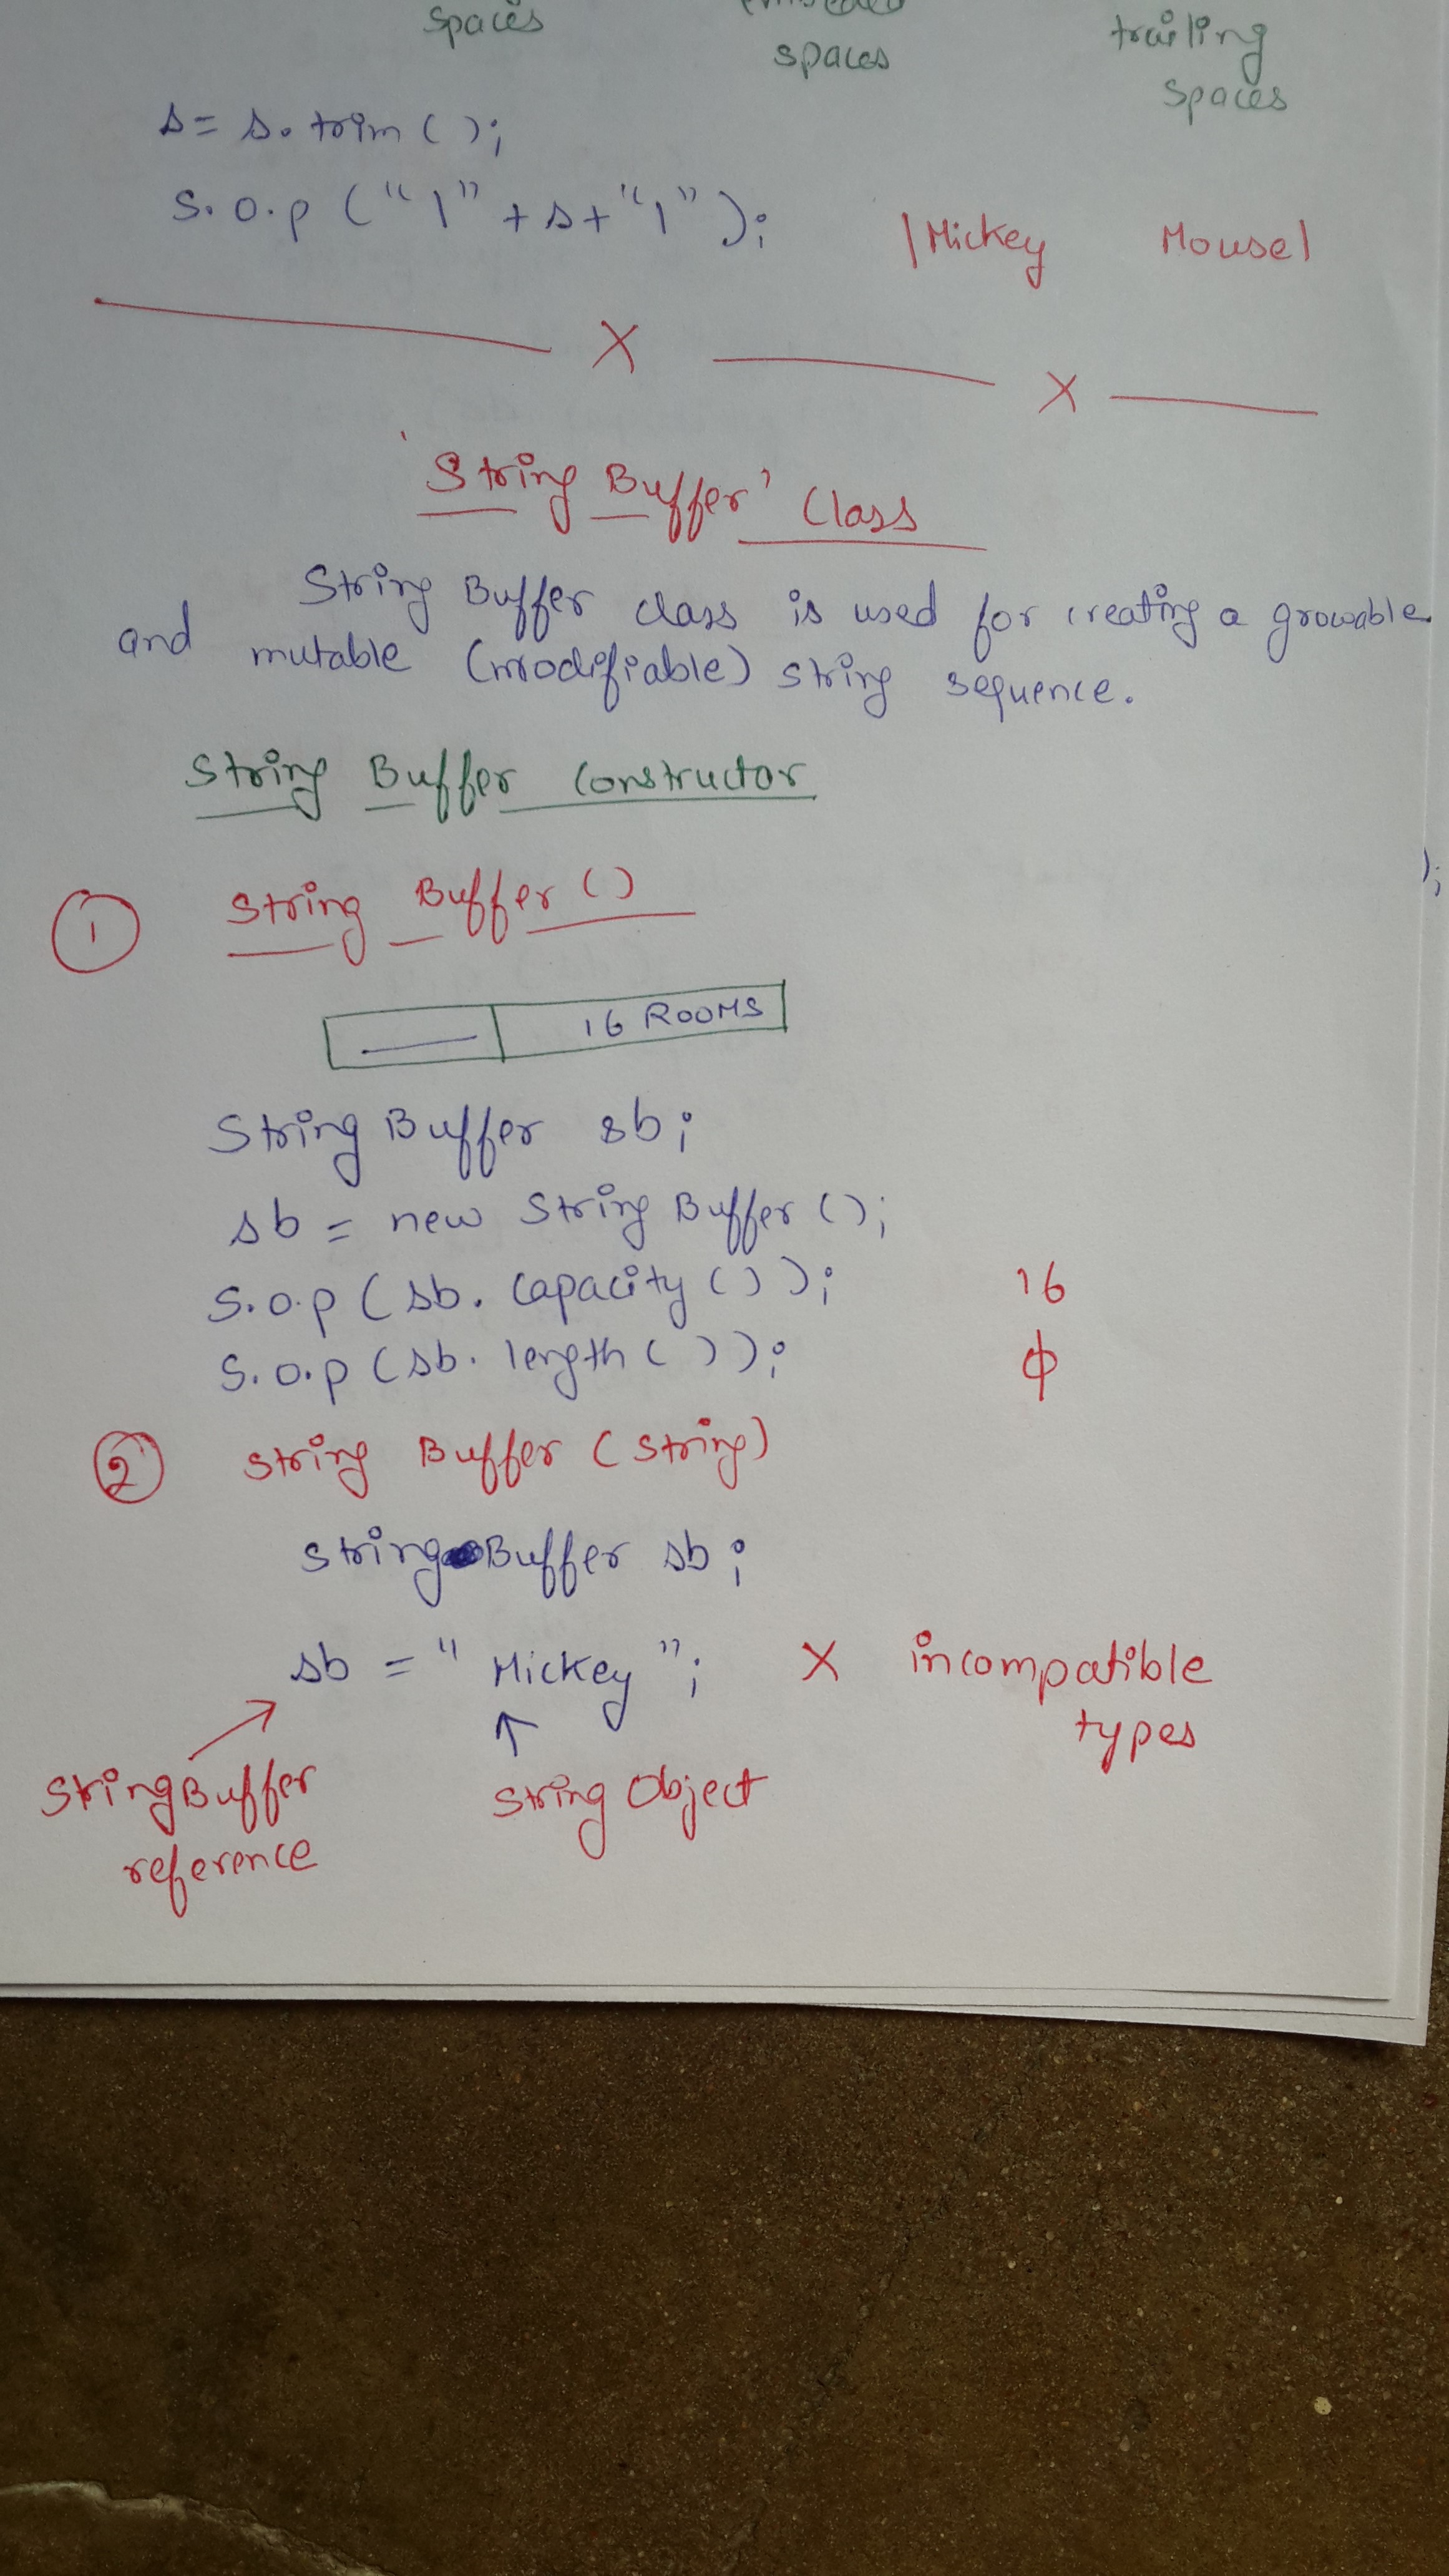 spaces embedded trailing
spaces spaces
s = s.trim();
S.o.p ("|" + s + "|"); |Mickey Mouse|
X X
'String Buffer' Class
String Buffer class is used for creating a growable
and mutable (modifiable) string sequence.
String Buffer Constructor
1 String Buffer ()
16 ROOMS
String Buffer sb;
sb = new String Buffer ();
S.o.p (sb. capacity ()); 16
S.o.p (sb. length ()); ϕ
2 String Buffer (String)
String Buffer sb;
sb = "Mickey"; X incompatible
types
StringBuffer String Object
reference
);